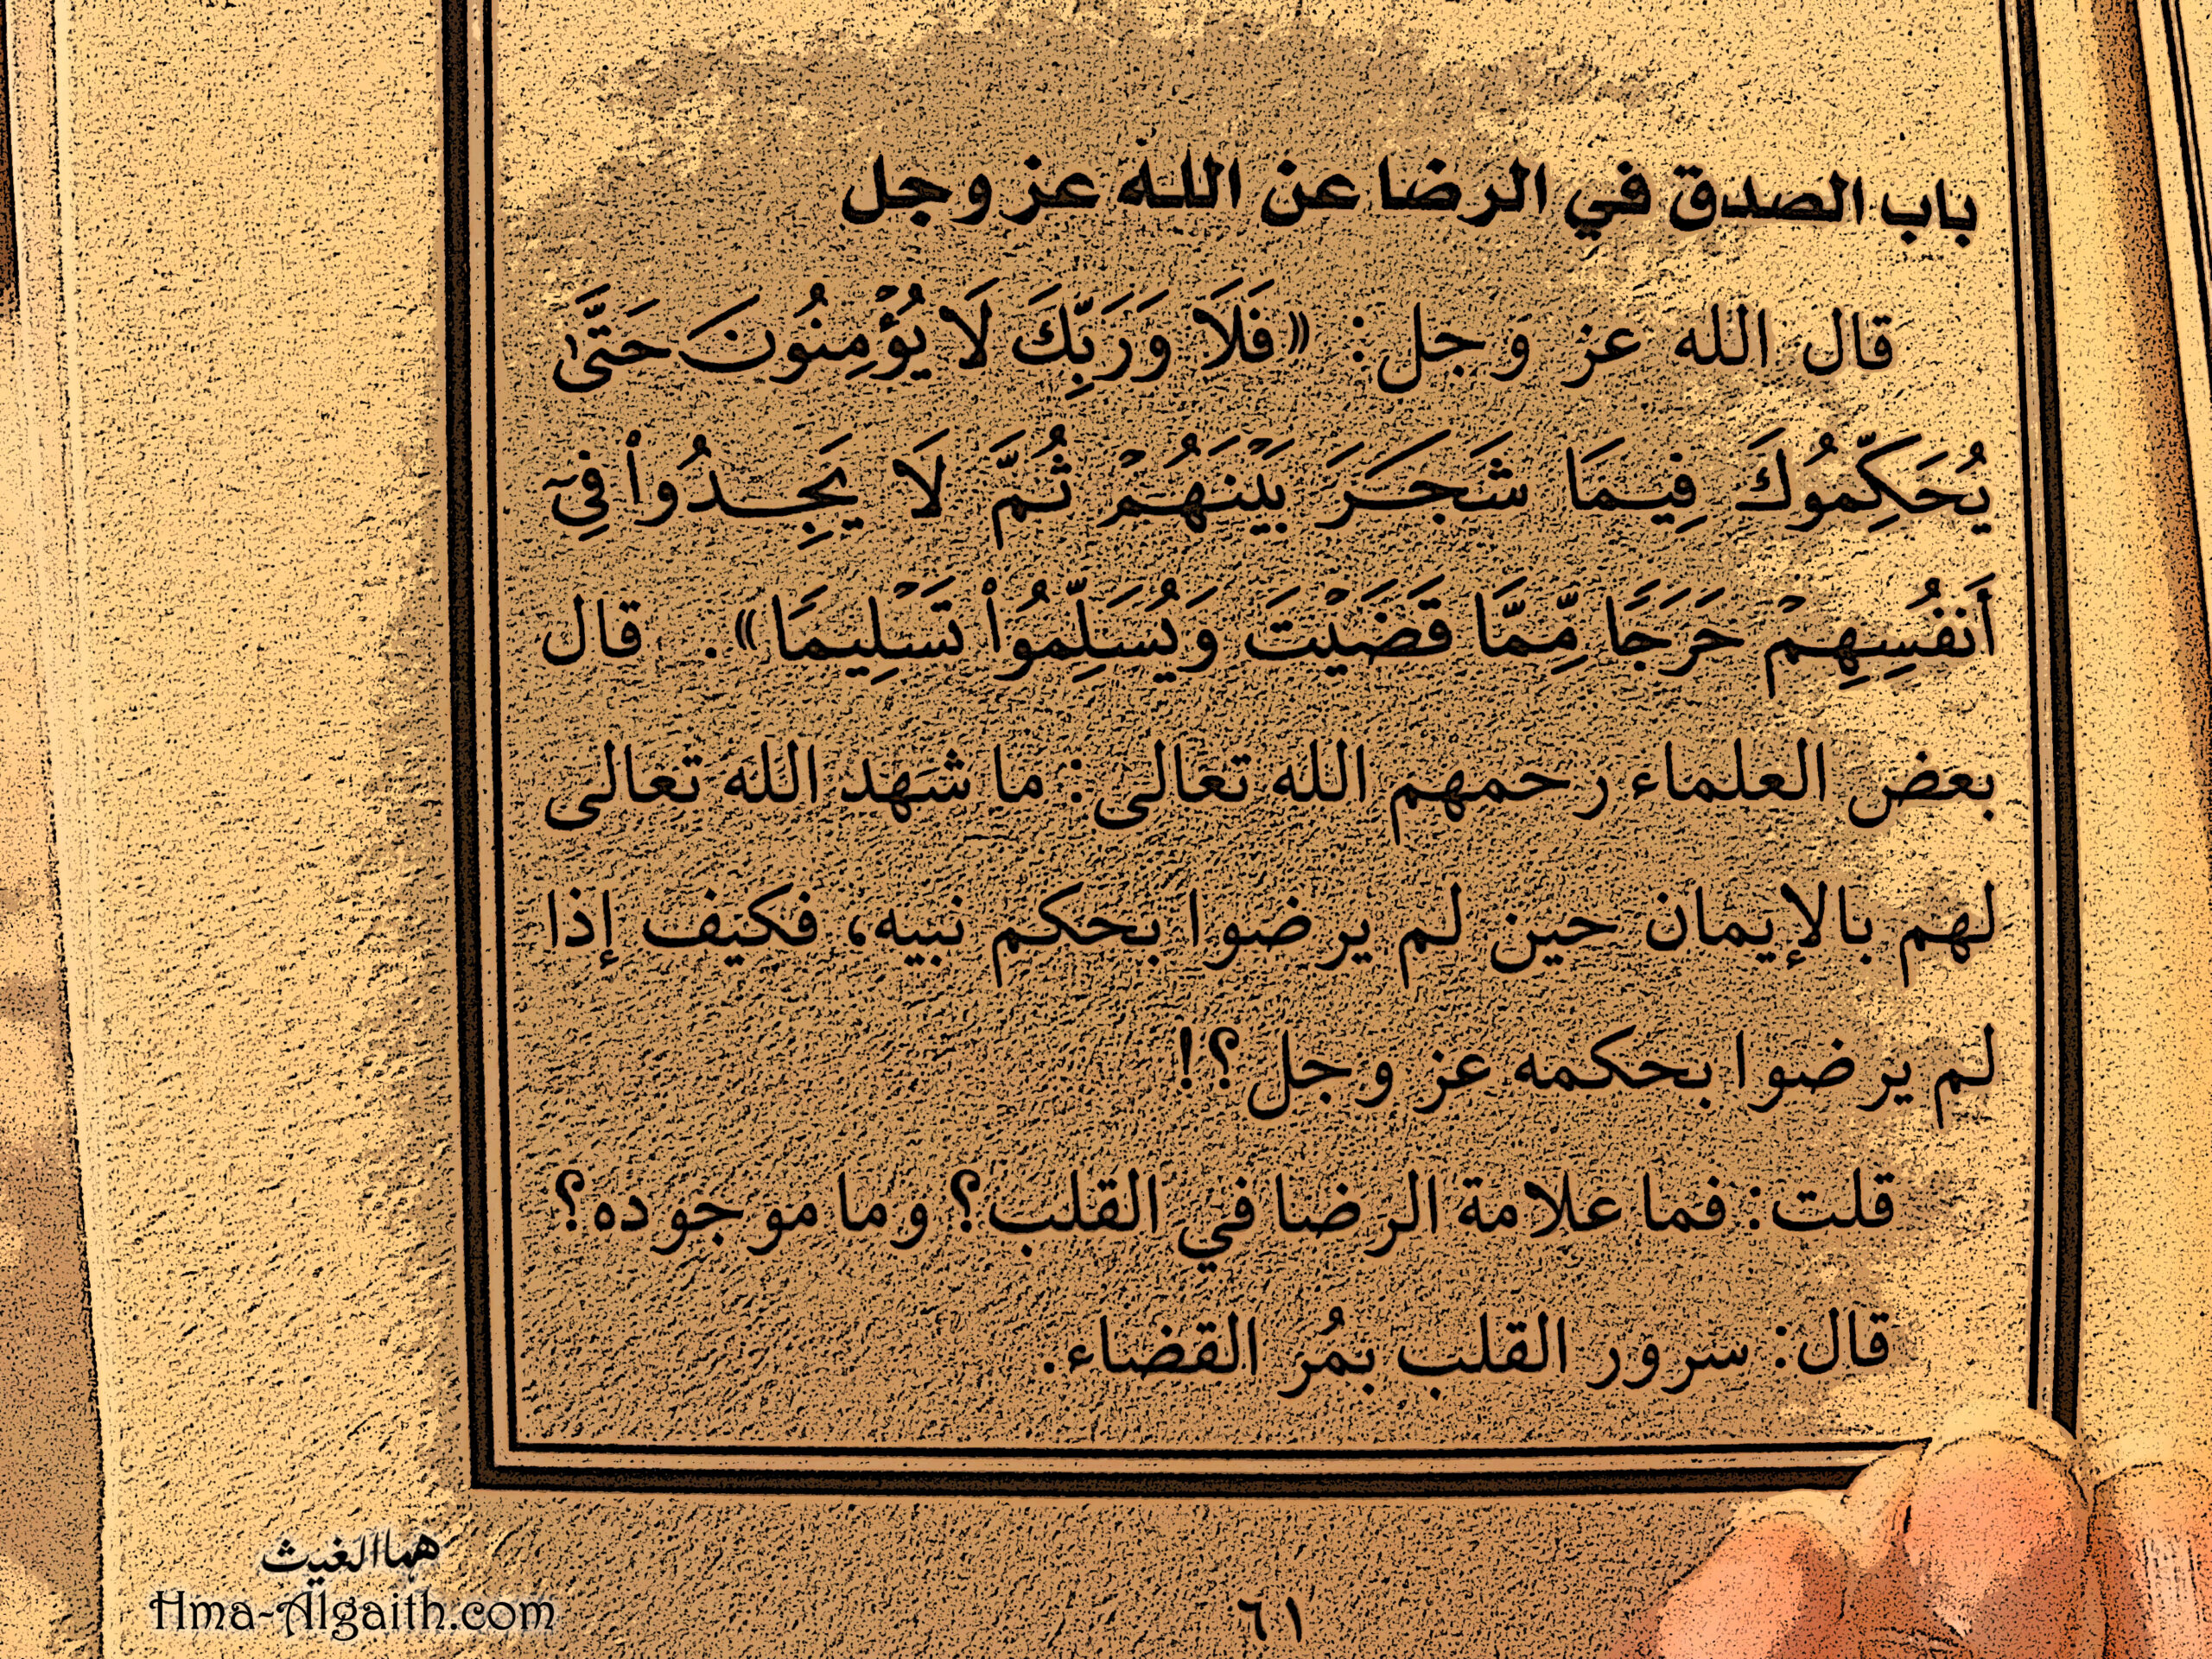 باب الصدق في الرضا عن الله عز وجل
قال الله عز وجل: «فَلَا وَرَبِّكَ لَا يُؤْمِنُونَ حَتَّىٰ
يُحَكِّمُوكَ فِيمَا شَجَرَ بَيْنَهُمْ ثُمَّ لَا يَجِدُوا۟ فِىٓ
أَنفُسِهِمْ حَرَجًا مِّمَّا قَضَيْتَ وَيُسَلِّمُوا۟ تَسْلِيمًا». قال
بعض العلماء رحمهم الله تعالى: ما شهد الله تعالى
لهم بالإيمان حين لم يرضوا بحكم نبيه، فكيف إذا
لم يرضوا بحكمه عز وجل؟!
قلت: فما علامة الرضا في القلب؟ وما موجوده؟
قال: سرور القلب بمُر القضاء.
هما الغيث
Hma-Algaith.com
٦١